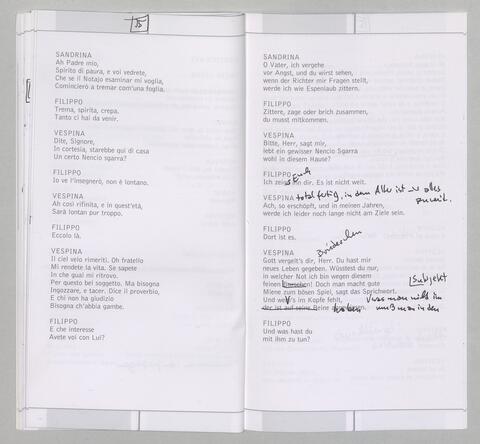 SANDRINA
Ah Padre mio,
Spirito di paura, e voi vedrete,
Che se il Notajo esaminar mi voglia,
Comincierò a tremar com'una foglia.
FILIPPO
Trema, spirita, crepa.
Tanto ci hai da venir.
VESPINA
Dite, Signore,
In cortesia, starebbe qui di casa
Un certo Nencio sgarra?
FILIPPO
Io ve l'insegnerò, non è lontano.
VESPINA
Ah così rifinita, e in quest'età,
Sarà lontan pur troppo.
FILIPPO
Eccolo là.
VESPINA
Il ciel velo rimeriti. Oh fratello
Mi rendete la vita. Se sapete
In che guai mi ritrovo.
Per questo bei soggetto. Ma bisogna
Ingozzare, e tacer. Dice il proverbio,
E chi non ha giudizio
Bisogna ch'abbia gambe.
FILIPPO
E che interesse
Avete voi con Lui?
SANDRINA
O Vater, ich vergehe
vor Angst, und du wirst sehen,
wenn der Richter mir Fragen stellt,
werde ich wie Espenlaub zittern.
FILIPPO
Zittere, zage oder brich zusammen,
du musst mitkommen.
VESPINA
Bitte, Herr, sagt mir,
lebt ein gewisser Nencio Sgarra
wohl in diesem Hause?
FILIPPO
Euch
Ich zeige dir. Es ist nicht weit.
VESPINA total fertig, in dem Alter ist alles
zu weit.
Ach, so erschöpft, und in meinen Jahren,
werde ich leider noch lange nicht am Ziele sein.
FILIPPO
Dort ist es.
VESPINA Brüderchen
Gott vergelt's dir, Herr. Du hast mir
neues Leben gegeben. Wüsstest du nur,
in welcher Not ich bin wegen diesem
feinen Doch man macht gute Subjekt
Miene zum bösen Spiel, sagt das Sprichwort.
Und wem's im Kopfe fehlt, was man nicht im
der ist auf seine Beine muß man in den
haben
FILIPPO
Und was hast du
mit ihm zu tun?